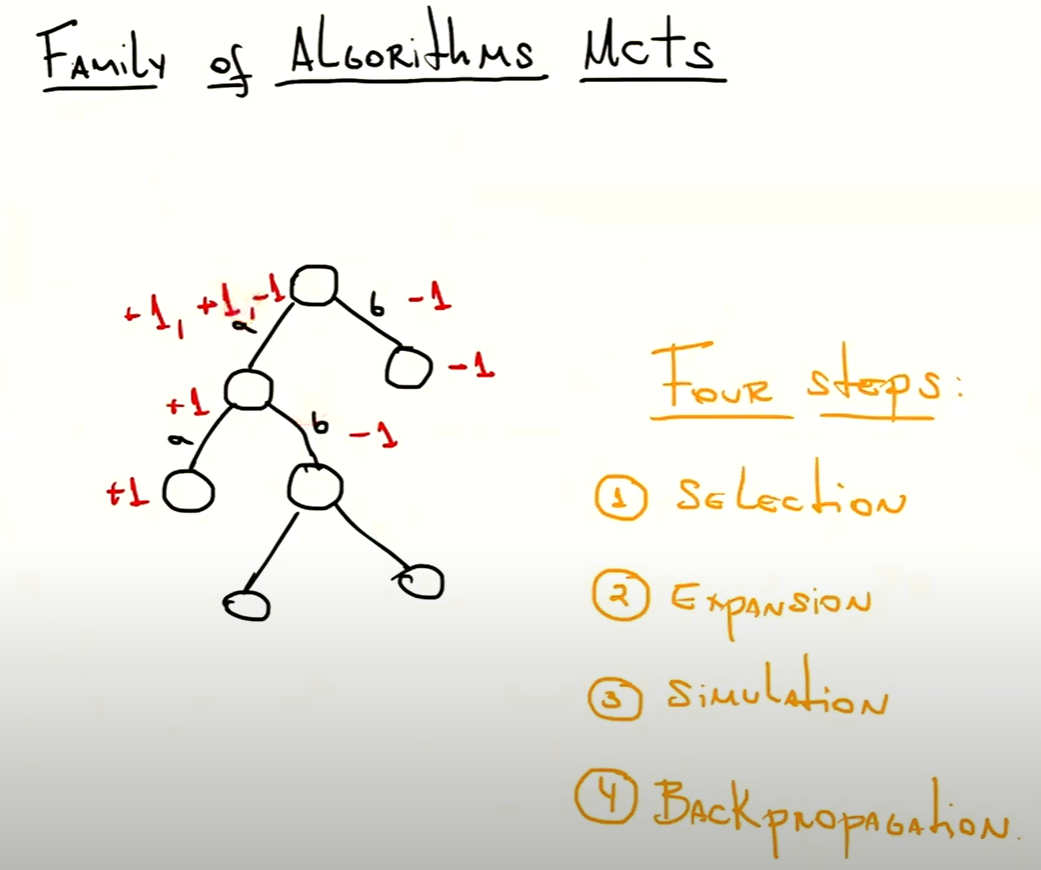 Family of Algorithms Mcts
+1, +1,-1
a
b -1
-1
+1
a
b -1
+1
Four steps:
1 Selection
2 Expansion
3 Simulation
4 Backpropagation.